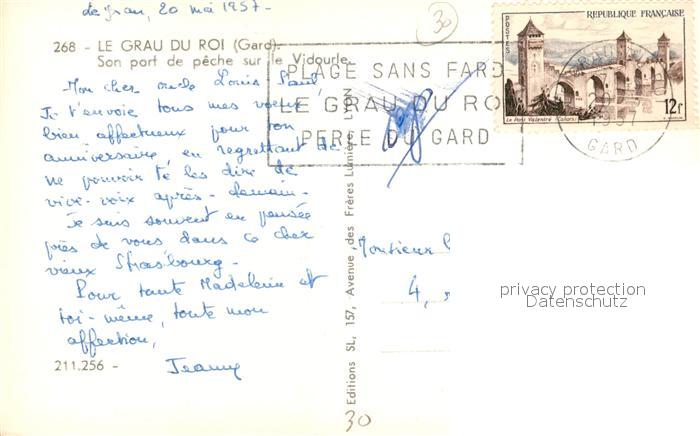 de Jean, 20 mai 1957-
30
268 - LE GRAU DU ROI (Gard)
Son port de pêche sur le Vidourle
Mon cher oncle Louis Paul,
Je t'envoie tous mes voeux
bien affectueux pour ton
anniversaire, en regrettant de
ne pouvoir te les dire de
vive-voix après-demain-
Je suis souvent en pensée
près de vous dans ce cher
vieux Strasbourg-
Pour tante Madeleine et
toi-même, toute mon
affection,
Jeanny
211.256 -
PLAGE SANS FARD
LE GRAU DU ROI
PERLE DU GARD
POSTES
REPUBLIQUE FRANÇAISE
12F
Le Pont Valentré (Cahors)
GARD
Editions SL, 157, Avenue des Frères Lumière, LYON
Monsieur
4,
privacy protection
Datenschutz
30